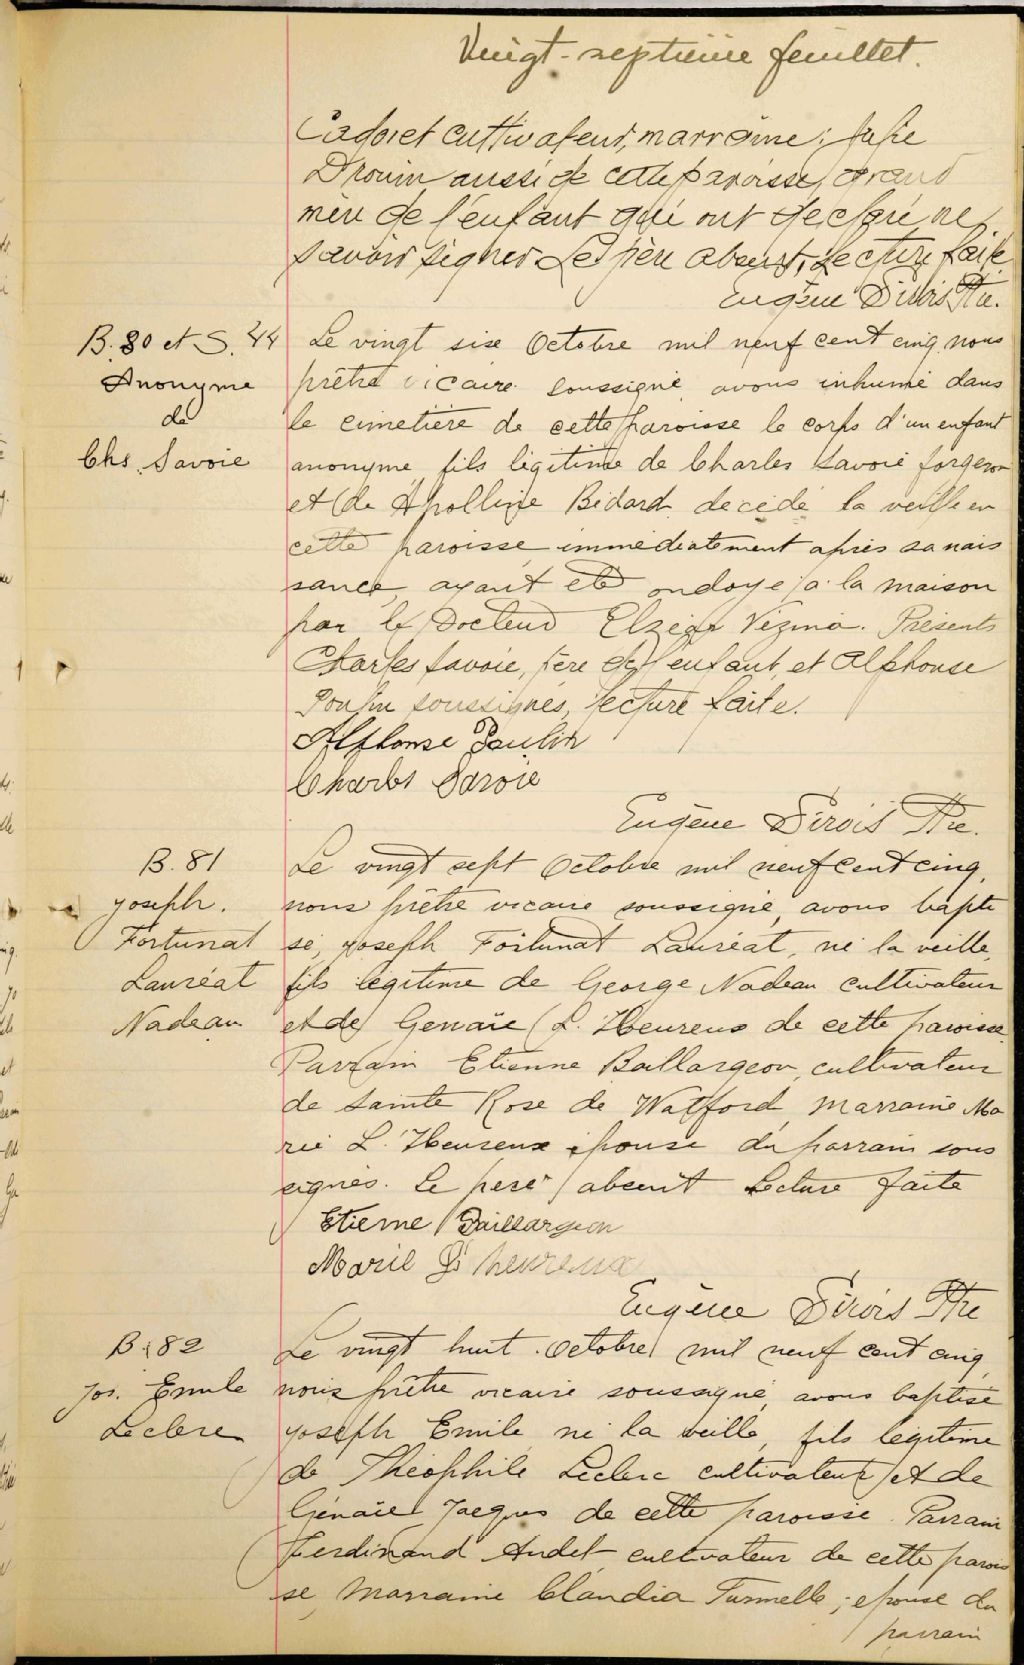 Vingt-septième feuillet.
Cadoret cultivateur, marraine; Julie
Drouin aussi de cette paroisse, grand
mère de l'enfant qui ont declaré ne
savoir signer. Le père absent, Lecture faite
Eugène Sirois Ptre.
B. 80 et S. 44
Anonyme
de
Chs. Savoie
Le vingt six Octobre mil neuf cent cinq nous
prêtre vicaire soussigné avons inhumé dans
le cimetière de cette paroisse le corps d'un enfant
anonyme, fils légitime de Charles Savoie forgeron
et de Apolline Bédard decédé la veille en
cette paroisse immédiatement après sa nais
sance, ayant été ondoyé à la maison
par le Docteur Elzéar Vézina. Présents
Charles Savoie, père de l'enfant, et Alphonse
Poulin soussignés, lecture faite.
Alphonse Poulin
Charles Savoie
Eugène Sirois Ptre.
B. 81
Joseph.
Fortunat
Lauréat
Nadeau
Le vingt sept Octobre mil neuf cent cinq,
nous prêtre vicaire soussigné, avons bapti
sé, Joseph Fortunat Lauréat, né la veille,
fils légitime de George Nadeau cultivateur
et de Genaïe L'Heureux de cette paroisse
Parrain Etienne Baillargeon, cultivateur
de Sainte Rose de Watford, marraine Ma
rie L'Heureux épouse du parrain sous
signés. Le père absent Lecture faite
Etienne Baillargeon
Marie L'heureux
Eugène Sirois Ptre
B. 82
Jos. Emile
Leclerc
Le vingt huit Octobre mil neuf cent cinq,
nous prêtre vicaire soussigné, avons baptisé
Joseph Emile né la veille, fils légitime
de Théophile Leclerc cultivateur et de
Génaïe Jacques de cette paroisse. Parrain
Ferdinand Audet cultivateur de cette parois
se, marraine Claudia Turmelle, épouse du
parrain